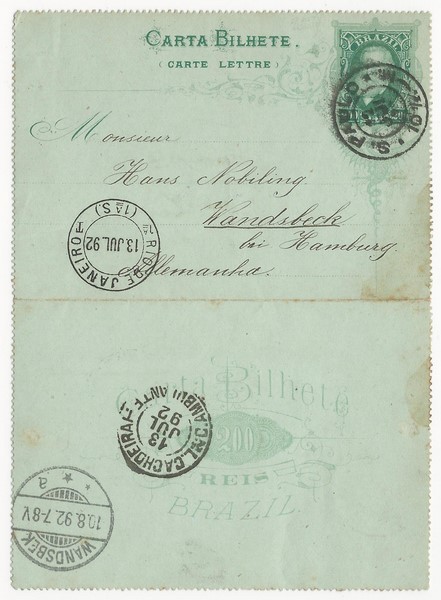 CARTA BILHETE.
(CARTE LETTRE)
BRAZIL
S. PAULO
Monsieur
Hans Nobiling.
Wandsbeck
bei Hamburg.
Allemanha.
RIO DE JANEIRO
(1ª S.)
13 JUL 92
Carta Bilhete
200
REIS
BRAZIL
CACHOEIRA
AMBULANTE
13
JUL
92
WANDSBEK
10.8.92.7-8V
a